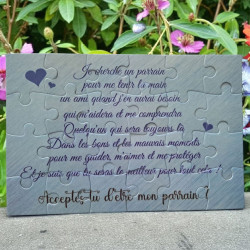 Je cherche un parrain
pour me tenir la main
un ami quand j'en aurai besoin
qui m'aidera et me comprendra
Quelqu'un qui sera toujours là
Dans les bons et les mauvais moments
pour me guider, m'aimer et me protéger
Et je sais que tu seras le meilleur pour tout cela !
Acceptes-tu d'être mon parrain ?